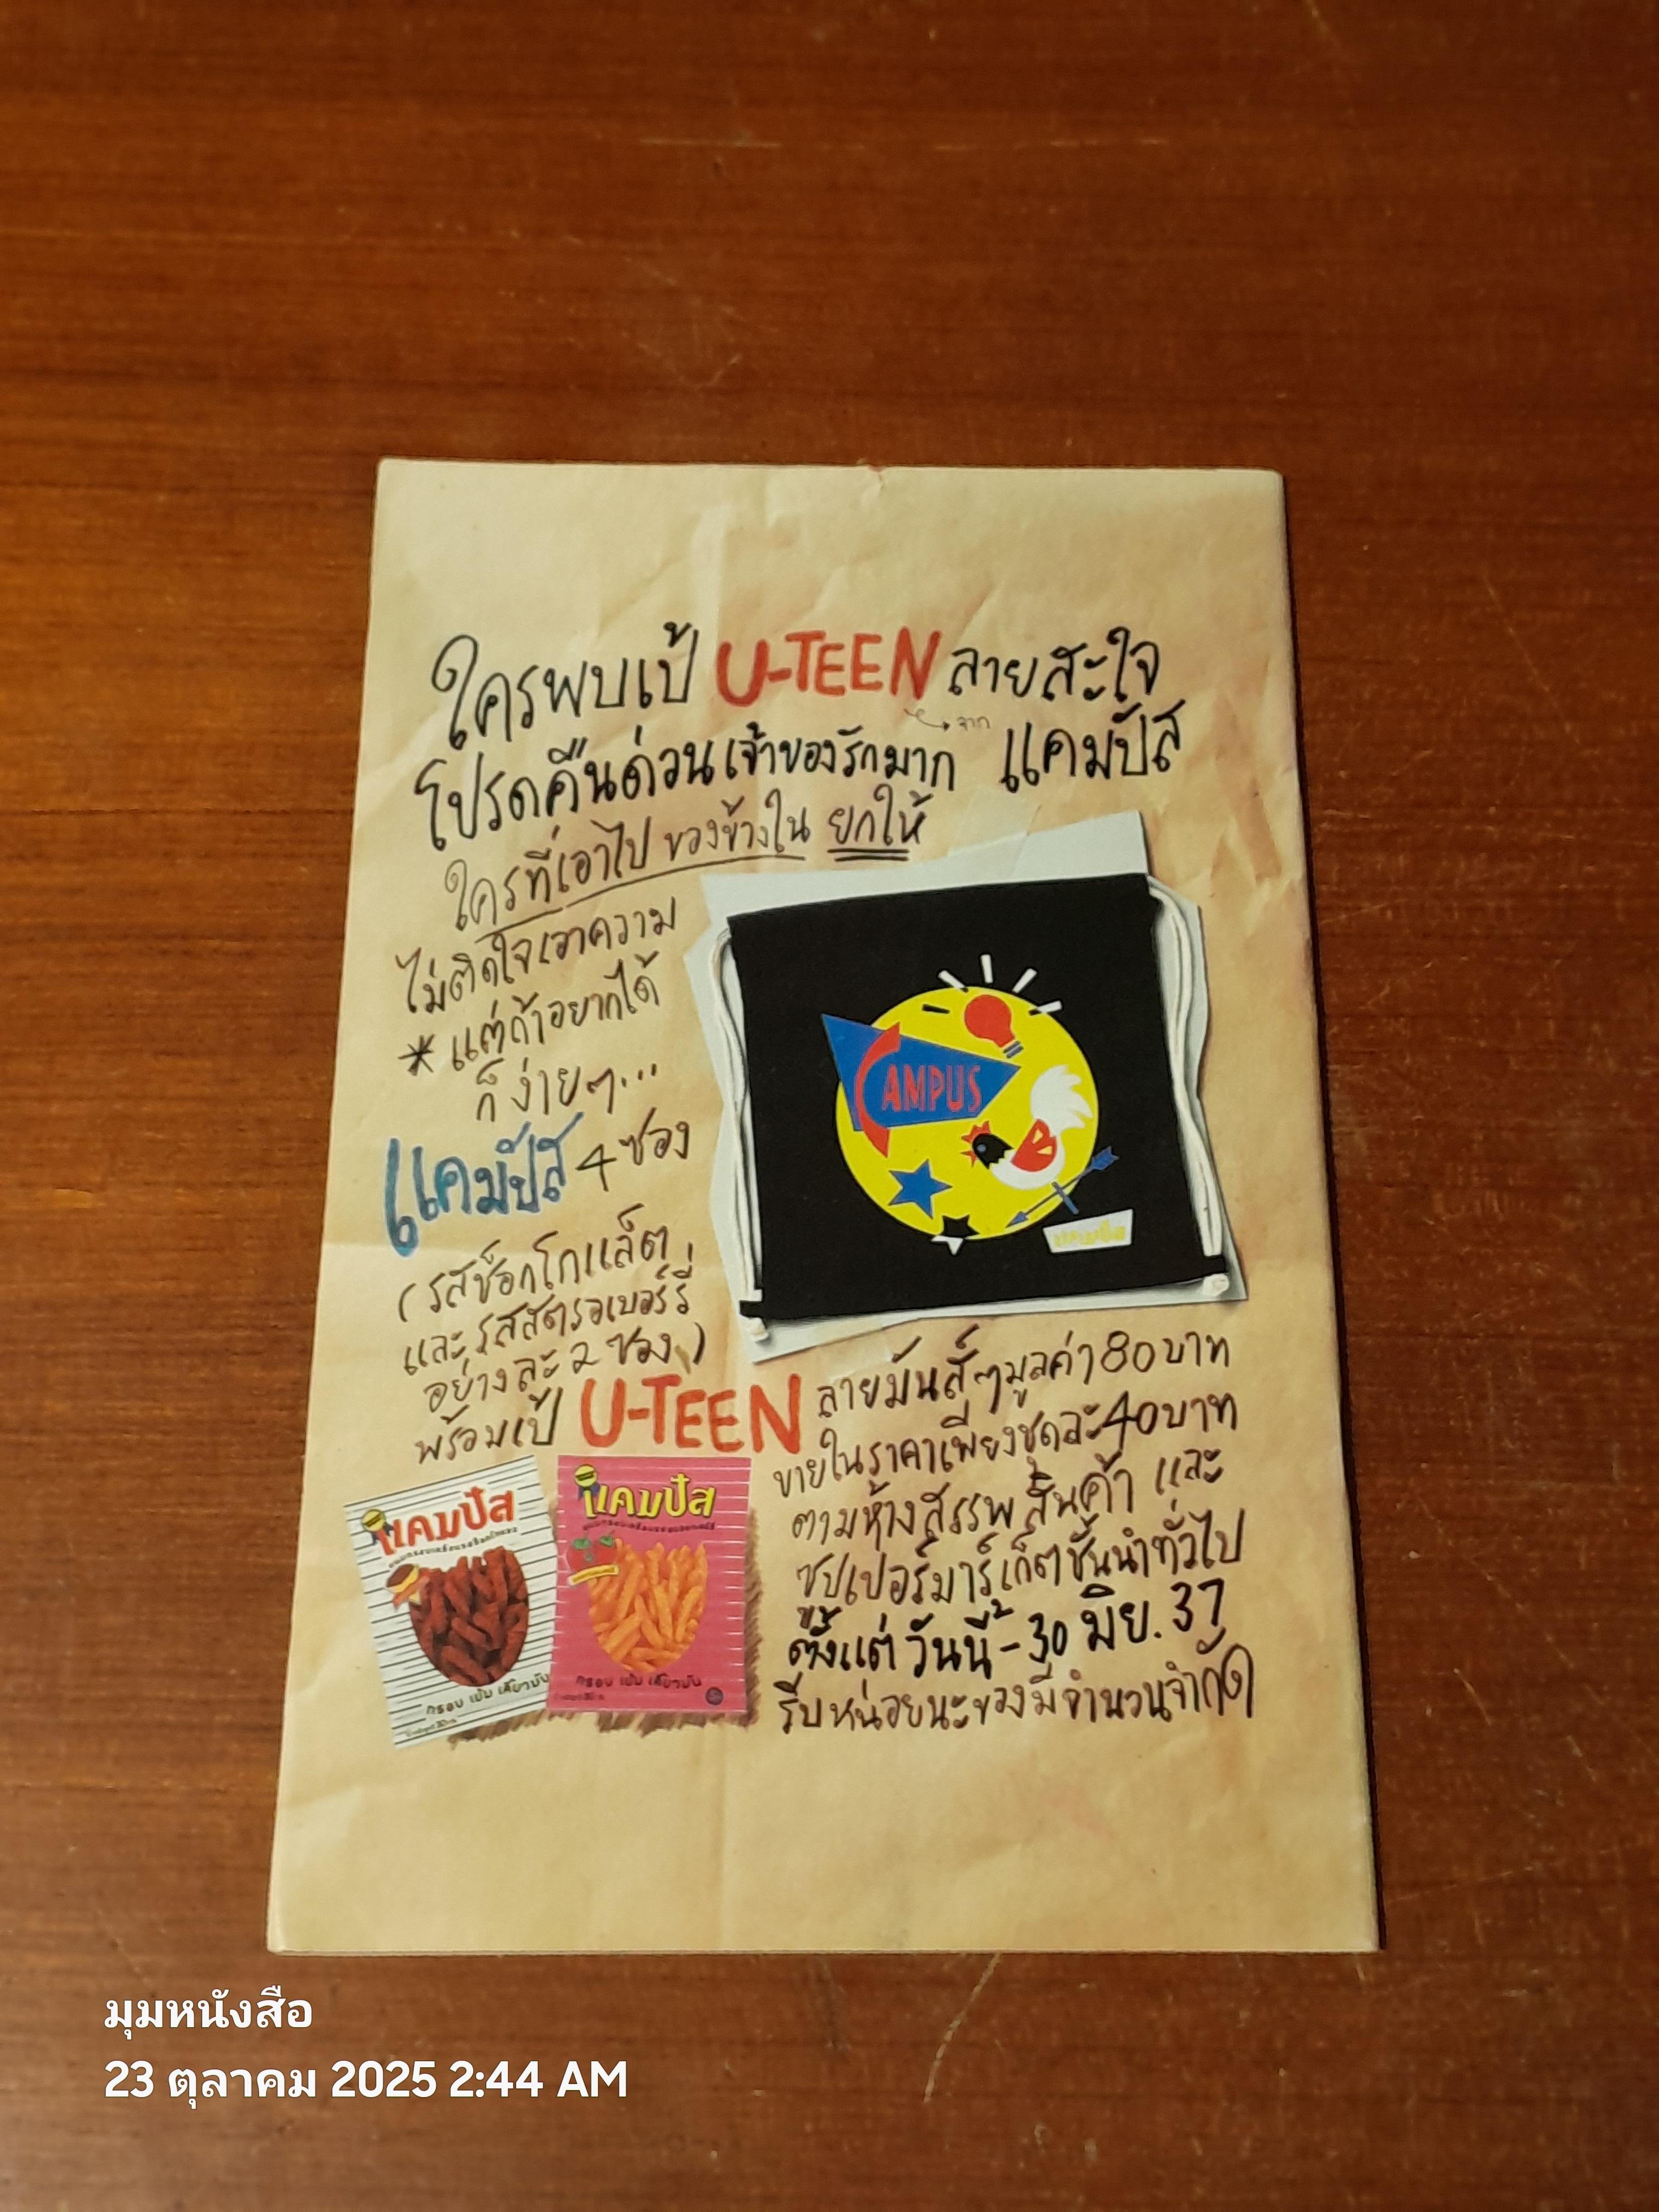 ใครพบเป้ U-TEEN ลายสะใจ
จาก
โปรดคืนด่วนเจ้าของรักมาก แคมปัส
ใครที่เอาไป ของข้างใน ยกให้
ไม่ติดใจเอาความ
* แต่ถ้าอยากได้
ก็ง่ายๆ...
แคมปัส 4 ซอง
(รสช็อกโกแล็ต
และรสสตรอเบอร์รี่
อย่างละ 2 ซอง)
พร้อมเป้ U-TEEN ลายมันส์ๆมูลค่า 80 บาท
ขายในราคาเพียงชุดละ 40 บาท
ตามห้างสรรพสินค้า และ
ซุปเปอร์มาร์เก็ตชั้นนำทั่วไป
ตั้งแต่วันนี้ - 30 มิย. 37
รีบหน่อยนะของมีจำนวนจำกัด
CAMPUS
แคมปัส
แคมปัส
กรอบ เข้ม เคี้ยวมัน
แคมปัส
กรอบ เข้ม เคี้ยวมัน
มุมหนังสือ
23 ตุลาคม 2025 2:44 AM